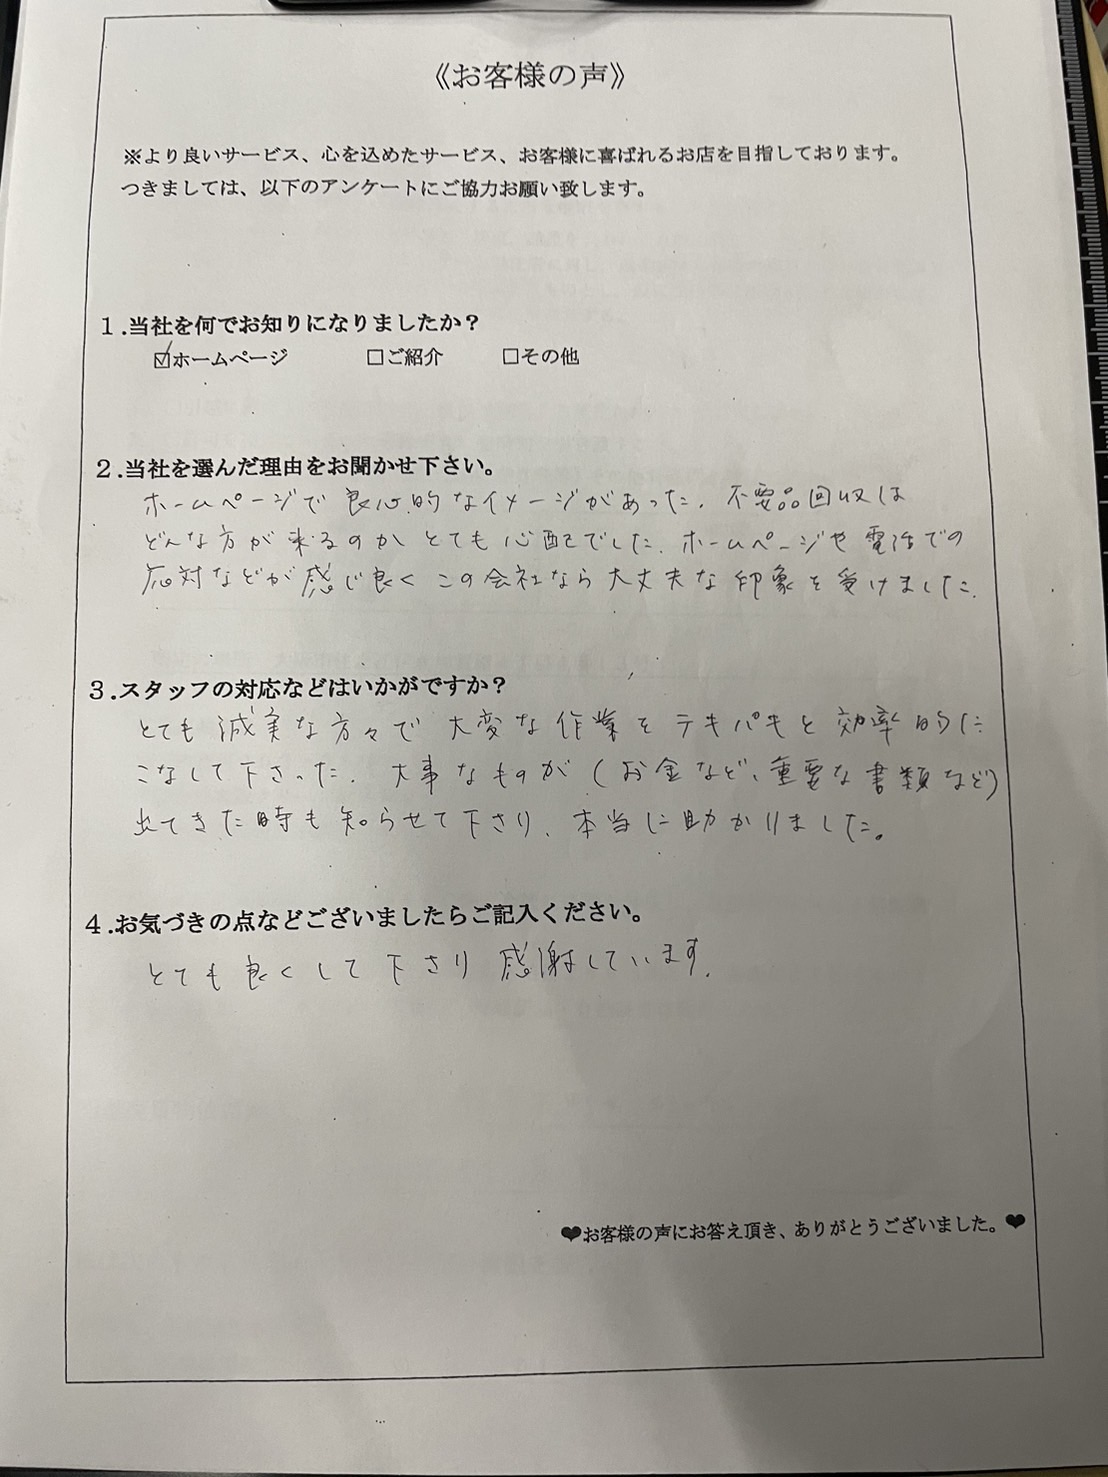 《お客様の声》
※より良いサービス、心を込めたサービス、お客様に喜ばれるお店を目指しております。
つきましては、以下のアンケートにご協力お願い致します。
1.当社を何でお知りになりましたか?
☑ホームページ □ご紹介 □その他
2.当社を選んだ理由をお聞かせ下さい。
ホームページで良心的なイメージがあった。不要品回収は
どんな方が来るのかとても心配でした。ホームページや電話での
応対などが感じ良くこの会社なら大丈夫な印象を受けました。
3.スタッフの対応などはいかがですか?
とても誠実な方々で大変な作業をテキパキと効率的に
こなして下さった。大事なものが(お金など、重要な書類など)
出てきた時も知らせて下さり、本当に助かりました。
4.お気づきの点などございましたらご記入ください。
とても良くして下さり感謝しています。
❤お客様の声にお答え頂き、ありがとうございました。❤